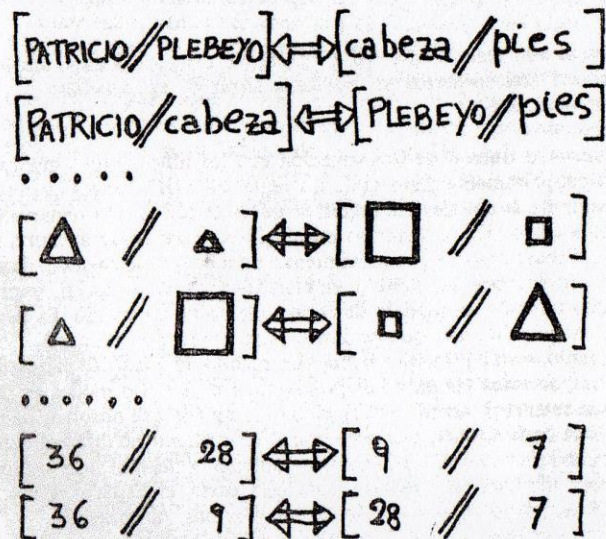 [PATRICIO//PLEBEYO]⇔[cabeza//pies]
[PATRICIO//cabeza]⇔[PLEBEYO//pies]
.....
[△ // △]⇔[□ // □]
[△ // □]⇔[□ // △]
......
[36 // 28]⇔[9 // 7]
[36 // 9]⇔[28 // 7]